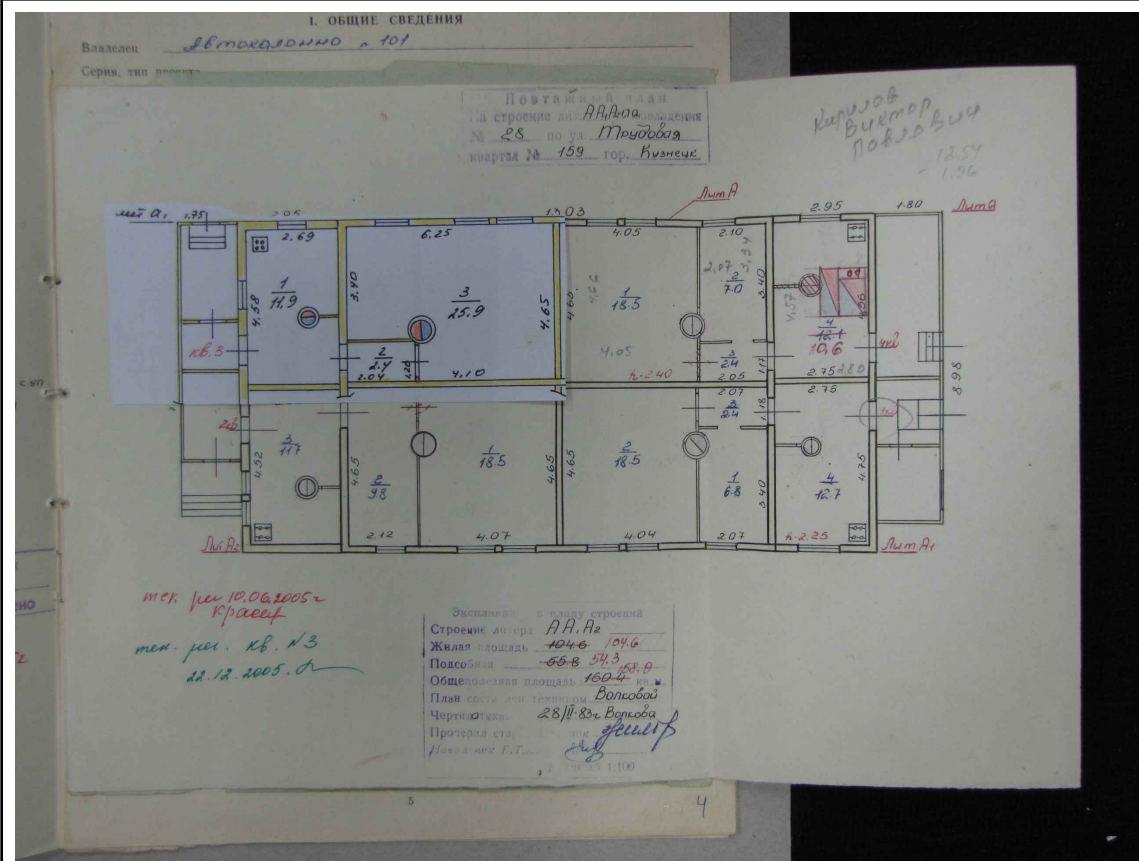 I. ОБЩИЕ СВЕДЕНИЯ
Владелец Автоколонна № 101
Серия, тип проекта
Поэтажный план
на строение домовладения
№ 28 по ул. Трудовая
квартал № 159 гор. Кузнецк
Кирилов
Виктор
Павлович
12.54
- 1.96
лит а₁ 1,75 13.03 Лит А 2.95 1.80 Лит а
2.69 6.25 4.05 2.10
2,07 5,34
1/11,9 4.58 3.40 3/25,9 4.65 4.65 1/18.5 4,05 2/7.0 3.40 4,57 4/12.1 10,6 4.56
кв. 3 2/2.4 2.04 1.20 4.10 h-2.40 3/2.4 2.05 1.17 2.75 2.80 4кв
8.98
2кв 3/11.7 4.52 4.65 2/9.8 1/18.5 4.65 4.65 2/18.5 2.07 3/2.4 1.18 1/6.8 3.40 2.75 4/12.7 4.75
Лит А₂ 2.12 4.07 4.04 2.07 h-2.25 Лит А₁
тек. рег 10.06.2005г
тек. рег. кв. №3
22.12.2005.
Экспликация к плану строений
Строение литера АА₁А₂
Жилая площадь 104.6 104.6
Подсобная 55.8 54.3
Общеполезная площадь 160.4 158.9 кв.м.
План составлен техником Волковой
Чертила техн. 28/II-83г Волкова
Проверил
1:100
5
4